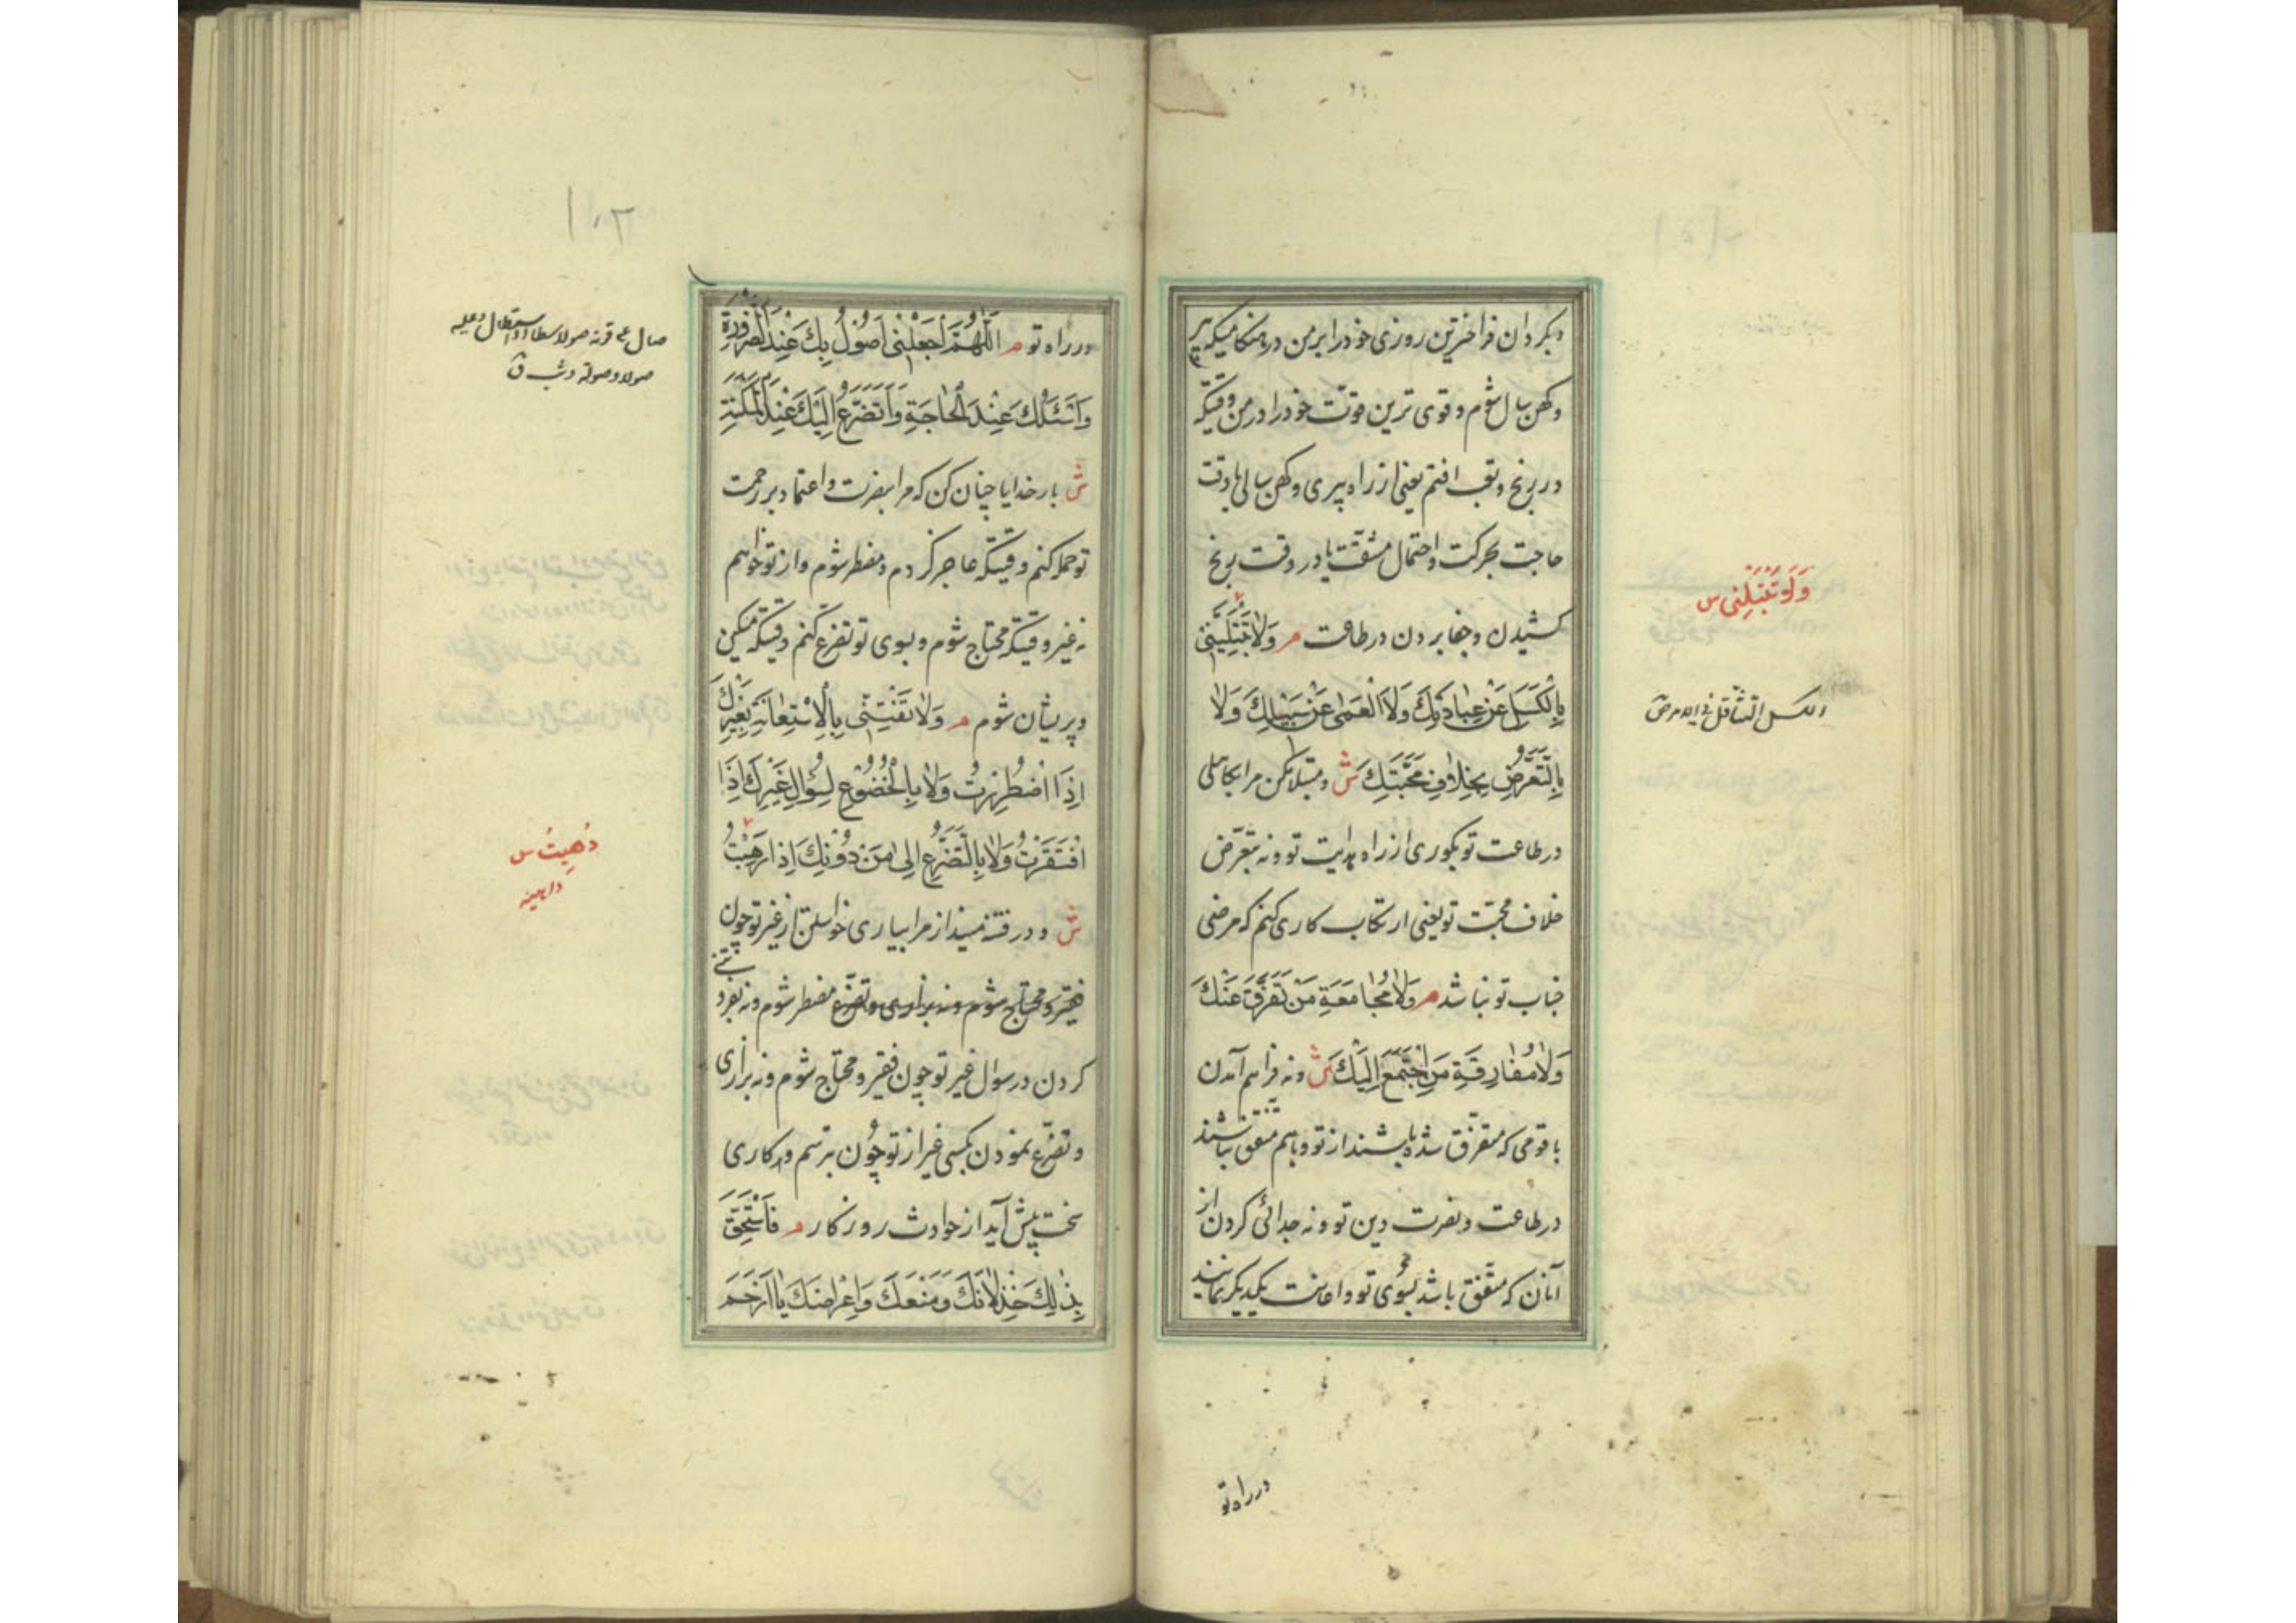 وبکردان فراخترین روزی خود را بر من در هنکامیکه پیر
وکهن سال شوم و قوی ترین قوتت خود را در من وقتیکه
در رنج و تعب افتم یعنی از راه پیری و کهن سالی یا وقت
حاجت بحرکت و احتمال مشقت یا در وقت رنج
کشیدن و جفا بردن در طاعت م وَلا تَبْتَلِيَنّي
بِالْكَسَلِ عَنْ عِبادَتِكَ وَلَا الْعَمى عَنْ سَبيلِكَ وَلا
بِالتَّعَرُّضِ بِخِلافِ مَحَبَّتِكَ ش و مبتلا مکن مرا بکاهلی
در طاعت تو بکوری از راه هدایت تو و نه بتعرّض
خلاف محبّت تو یعنی ارتکاب کاری کنم که مرضی
جناب تو نباشد م وَلا مُجامَعَةِ مَنْ تَفَرَّقَ عَنْكَ
وَلا مُفارِقَةِ مَنِ اجْتَمَعَ اِلَيْكَ ش و نه فراهم آمدن
با قومی که متفرّق شده باشند از تو و باهم متفق نباشند
در طاعت و نصرت دین تو و نه جدائی کردن از
آنان که متّفق باشد بسُوی تو و اعانت یکدیکر نمایند
وَلَا تَبْتَلِنی س
الکسل التثاقل فی الامر ص
در راه تو
در راه تو م اَللّهُمَّ اجْعَلْني اَصُولُ بِكَ عِنْدَ الضَّرُورَةِ
وَاَسْئَلُكَ عِنْدَ الْحاجَةِ وَاَتَضَرَّعُ اِلَيْكَ عِنْدَ الْمَسْكَنَةِ
ش بار خدایا چنان کن که مرا بنصرت و اعتماد بر رحمت
تو حمله کنم وقتیکه عاجز کردم و مضطر شوم و از تو خواهم
نه غیر وقتیکه محتاج شوم و بسوی تو تضرّع کنم وقتیکه مسکین
وپریشان شوم م وَلا تَفْتِنّي بِالْاِسْتِعانَةِ بِغَيْرِكَ
اِذَا اضْطُرِرْتُ وَلا بِالْخُضُوعِ لِسُؤالِ غَيْرِكَ اِذَا
افْتَقَرْتُ وَلا بِالتَّضَرُّعِ اِلى مَنْ دُونَكَ اِذا رَهِبْتُ
ش و در فتنه مینداز مرا بیاری خواستن از غیر تو چون
فقیر و محتاج شوم و نه بزاری و تضرّع مضطر شوم و نه بفرو
کردن در سوال غیر تو چون فقیر و محتاج شوم و نه بزاری
و تضرّع نمودن بکسی غیر از تو چون بترسم و کاری
سخت پیش آید از حوادث روزکار م فَاَسْتَحِقَّ
بِذلِكَ خِذْلانَكَ وَمَنْعَكَ وَاِعْراضَكَ يا اَرْحَمَ
صولا وصولة
دُهِیتُ س
داهیه